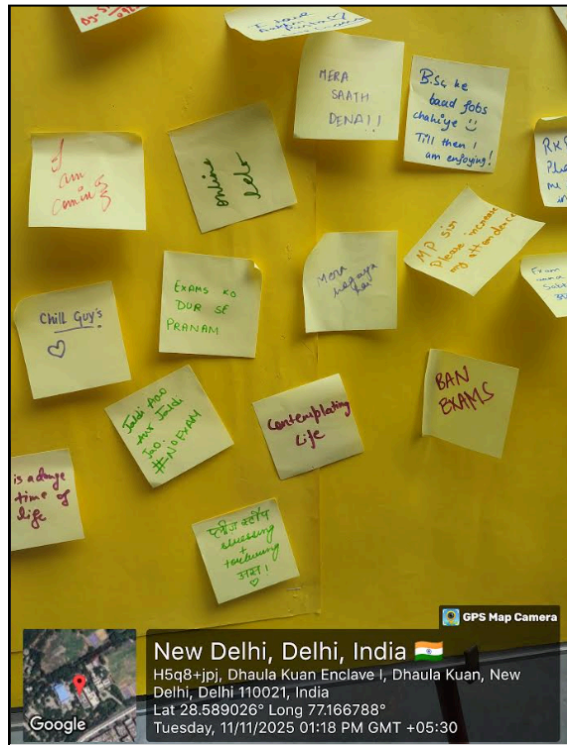 I have
MERA
SAATH
DENA!!
B.Sc. ke
baad jobs
chahiye
Till then I
am enjoying!
I
am
coming
online
lelo
MP sir
Please increase
my attendance
Chill Guy's
EXAMS KO
DUR SE
PRANAM
Mera
hogaya
hai
Exam
Jaldi Aao
Aur Jaldi
Jao.
#NOEXAM
Contemplating
Life
BAN
EXAMS
time of
life
प्लीज स्टॉप
stressing
+
torturing
GPS Map Camera
New Delhi, Delhi, India
H5q8+jpj, Dhaula Kuan Enclave I, Dhaula Kuan, New
Delhi, Delhi 110021, India
Lat 28.589026° Long 77.166788°
Tuesday, 11/11/2025 01:18 PM GMT +05:30
Google